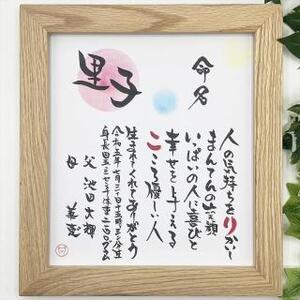 命名
里子
人の気持ちをりかいし
まんてんの笑顔
いっぱいの人に喜びと
幸せを与える
こころ優しい人
生まれてくれてありがとう
令和五年七月三十日
父 池田大輝
母